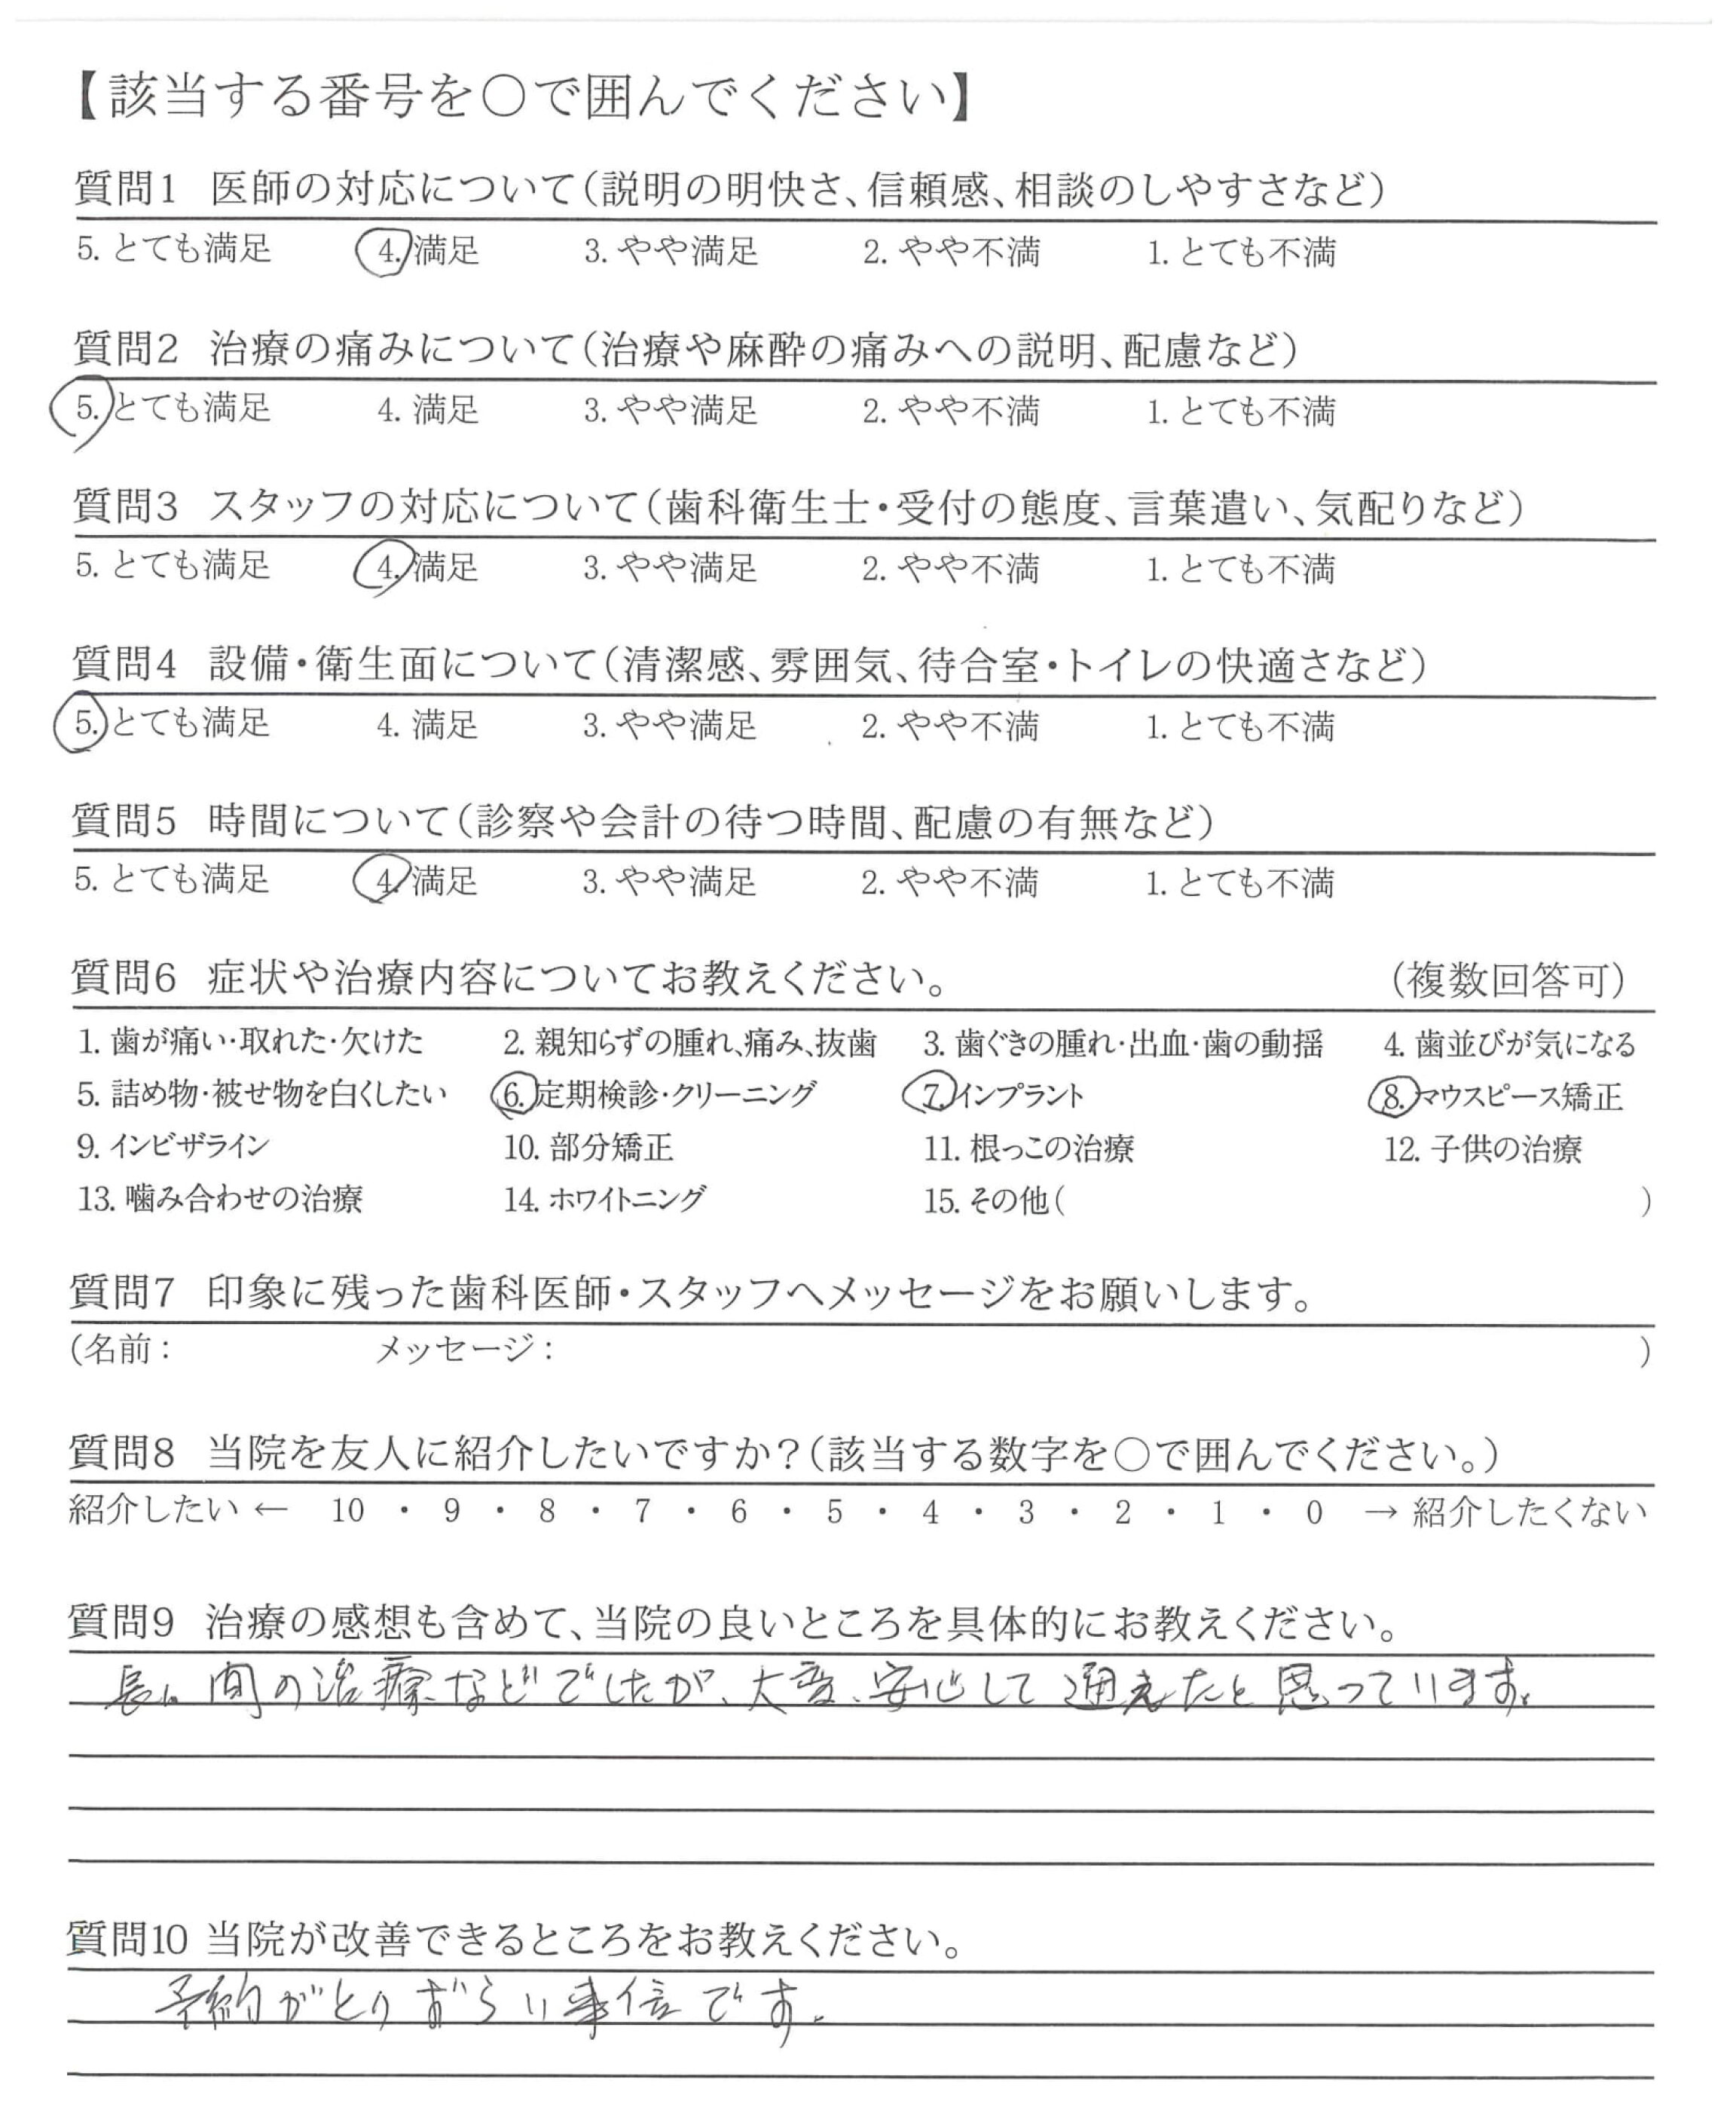 【該当する番号を○で囲んでください】
質問1 医師の対応について(説明の明快さ、信頼感、相談のしやすさなど)
5. とても満足 4. 満足 3. やや満足 2. やや不満 1. とても不満
質問2 治療の痛みについて(治療や麻酔の痛みへの説明、配慮など)
5. とても満足 4. 満足 3. やや満足 2. やや不満 1. とても不満
質問3 スタッフの対応について(歯科衛生士・受付の態度、言葉遣い、気配りなど)
5. とても満足 4. 満足 3. やや満足 2. やや不満 1. とても不満
質問4 設備・衛生面について(清潔感、雰囲気、待合室・トイレの快適さなど)
5. とても満足 4. 満足 3. やや満足 2. やや不満 1. とても不満
質問5 時間について(診察や会計の待つ時間、配慮の有無など)
5. とても満足 4. 満足 3. やや満足 2. やや不満 1. とても不満
質問6 症状や治療内容についてお教えください。 (複数回答可)
1. 歯が痛い・取れた・欠けた 2. 親知らずの腫れ、痛み、抜歯 3. 歯ぐきの腫れ・出血・歯の動揺 4. 歯並びが気になる
5. 詰め物・被せ物を白くしたい 6. 定期検診・クリーニング 7. インプラント 8. マウスピース矯正
9. インビザライン 10. 部分矯正 11. 根っこの治療 12. 子供の治療
13. 噛み合わせの治療 14. ホワイトニング 15. その他( )
質問7 印象に残った歯科医師・スタッフへメッセージをお願いします。
(名前: メッセージ: )
質問8 当院を友人に紹介したいですか?(該当する数字を○で囲んでください。)
紹介したい ← 10 ・ 9 ・ 8 ・ 7 ・ 6 ・ 5 ・ 4 ・ 3 ・ 2 ・ 1 ・ 0 → 紹介したくない
質問9 治療の感想も含めて、当院の良いところを具体的にお教えください。
長い間の治療などでしたが、大変、安心して通えたと思っています。
質問10 当院が改善できるところをお教えください。
予約がとりずらい事です。